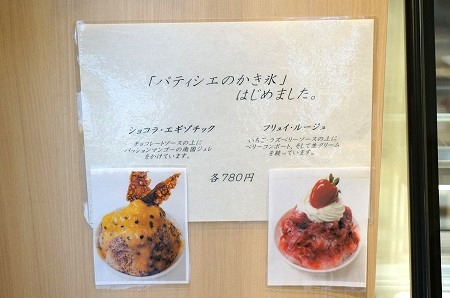 「パティシエのかき氷」
はじめました。
ショコラ・エギゾチック
チョコレートソースの上に
パッションマンゴーの南国ジュレ
をかけています。
フリュイ・ルージュ
いちご・ラズベリーソースの上に
ベリーコンポート、そして生クリーム
を絞っています。
各780円